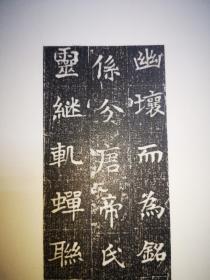 幽壤而為銘
係分唐帝氏
靈繼軌蟬聯